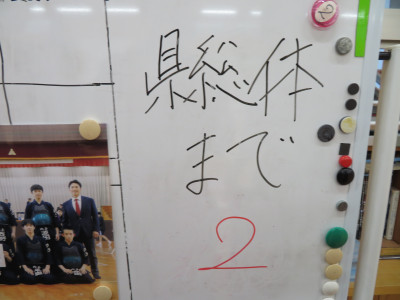 県総体
まで
2